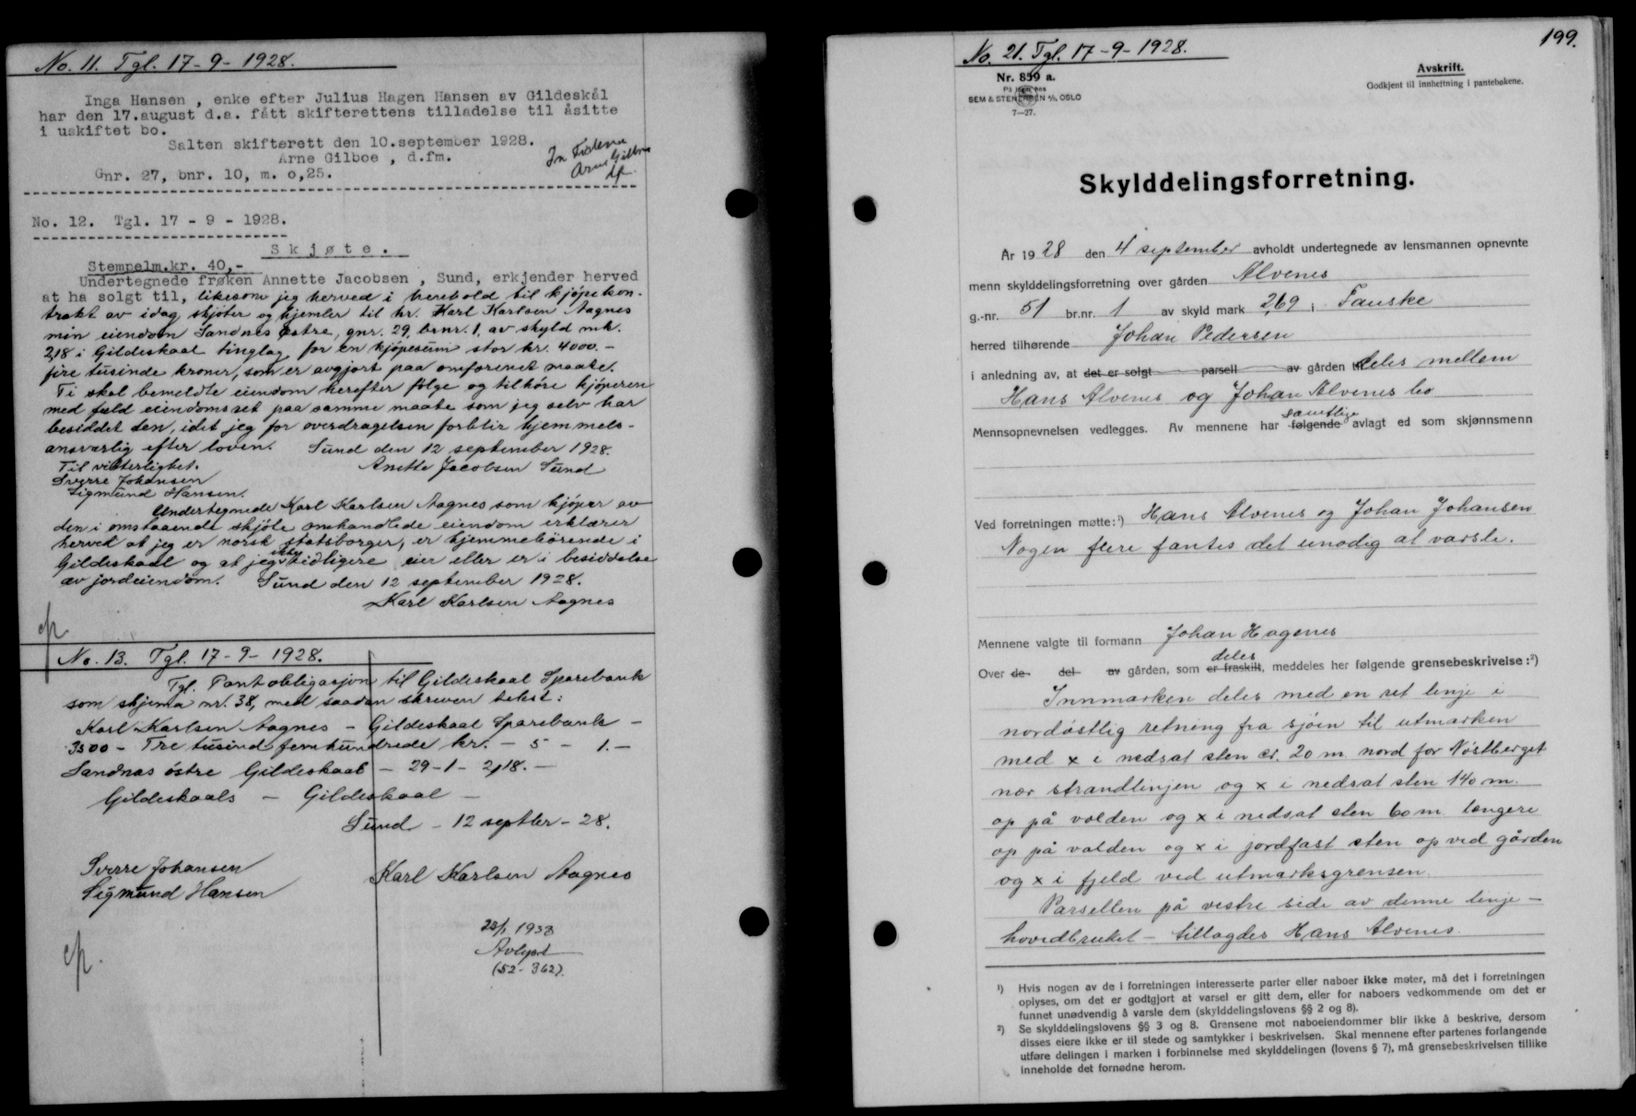 No. 11. Tgl. 17-9-1928.
Inga Hansen , enke efter Julius Hagen Hansen av Gildeskål
har den 17.august d.a. fått skifterettens tilladelse til åsitte
i uskiftet bo.
Salten skifterett den 10.september 1928.
Arne Gilboe , d.fm.
Gnr. 27, bnr. 10, m. 0,25.
No. 12. Tgl. 17 - 9 - 1928.
Skjøte.
Stempelm.kr. 40,-
Undertegnede frøken Annette Jacobsen , Sund, erkjender herved
at ha solgt til, likesom jeg herved i henhold til kjöpekon-
trakt av idag skjöter og hjemler til hr. Karl Karlsen Aagnes
min eiendom Sandnes östre, gnr. 29, brnr. 1, av skyld mk.
2,18 i Gildeskaal tinglag for en kjöpesum stor kr. 4000.-
fire tusinde kroner, som er avgjort paa omforenet maate.
Ti skal bemeldte eiendom herefter fölge og tilhöre kjöperen
med fuld eiendomsret paa samme maate som jeg selv har
besiddet den, idet jeg for overdragelsen forblir hjemmels-
ansvarlig efter loven. Sund den 12 september 1928.
Til vitterlighet. Anette Jacobsen Sund
Sverre Johansen
Sigmund Hansen.
Undertegnede Karl Karlsen Aagnes som kjöper av
den i omstaaende skjöte omhandlede eiendom erklærer
herved at jeg er norsk statsborger, er hjemmehörende i
Gildeskaal og at jeg ikke tidligere eier eller er i besiddelse
av jordeiendom. Sund den 12 september 1928.
Karl Karlsen Aagnes
No. 13. Tgl. 17-9-1928.
Tgl. Pantobligasjon til Gildeskaal Sparebank
som skjema nr. 38, med saadan skreven tekst:
Karl Karlsen Aagnes - Gildeskaal Sparebank -
3500 - Tre tusind femhundrede kr. - 5 - 1.-
Sandnas östre Gildeskaal - 29-1- 2,18.-
Gildeskaals - Gildeskaal -
Sund - 12 septbr - 28.
Sverre Johansen
Sigmund Hansen
Karl Karlsen Aagnes
1938
Avlyst
(52-362).
199.
No. 21. Tgl. 17-9-1928.
Nr. 859 a.
SEM & STENERSEN A/S, OSLO
7-27.
Avskrift.
Godkjent til innheftning i pantebøkene.
Skylddelingsforretning.
År 1928 den 4 september avholdt undertegnede av lensmannen opnevnte
menn skylddelingsforretning over gården Alvenes
g.-nr. 51 br.nr. 1 av skyld mark 2,69 i Fauske
herred tilhørende Johan Pedersen
i anledning av, at det er solgt parsell av gården deles mellem
Hans Alvenes og Johan Alvenes bo
Mennsopnevnelsen vedlegges. Av mennene har følgende samtlige avlagt ed som skjønnsmenn
Ved forretningen møtte:¹) Hans Alvenes og Johan Johansen
Nogen flere fantes det unödig at varsle.
Mennene valgte til formann Johan Hagenes
Over de del av gården, som er fraskilt, deles meddeles her følgende grensebeskrivelse:²)
Innmarken deles med en ret linje i
nordöstlig retning fra sjöen til utmarken
med x i nedsat sten ca. 20 m. nord for Nöstberget
nær strandlinjen og x i nedsat sten 140 m.
op på volden og x i nedsat sten 60 m. længere
op på valden og x i jordfast sten op ved gården
og x i fjeld ved utmarksgrensen.
Parsellen på vestre side av denne linje -
hovedbruket - tillagdes Hans Alvenes.
¹) Hvis nogen av de i forretningen interesserte parter eller naboer ikke møter, må det i forretningen
oplyses, om det er godtgjort at varsel er gitt dem, eller for naboers vedkommende om det er
funnet unødvendig å varsle dem (skylddelingslovens §§ 2 og 8).
²) Se skylddelingslovens §§ 3 og 8. Grensene mot naboeiendommer blir ikke å beskrive, dersom
disses eiere ikke er til stede og samtykker i beskrivelsen. Skal mennene efter partenes forlangende
utføre delingen i marken i forbinnelse med skylddelingen (lovens § 7), må grensebeskrivelsen tillike
inneholde det fornødne herom.